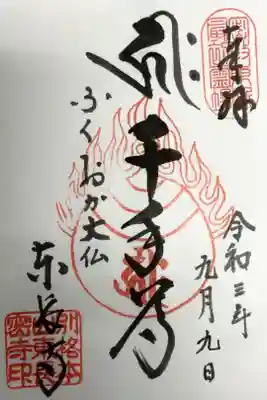 奉拝
令和三年
九月九日
𑖮𑖿𑖨𑖱𑖾
千手尊
ふくおか大仏
東長寺